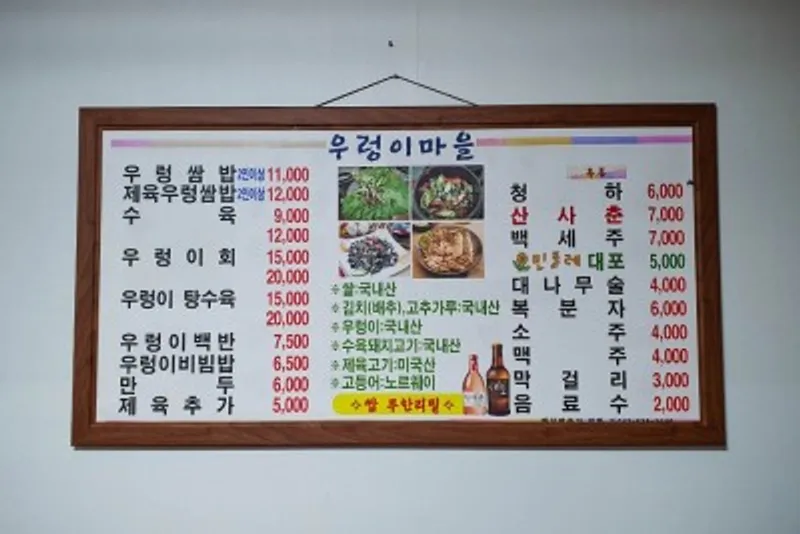 우렁이마을
우렁쌈밥 2인이상 11,000
제육우렁쌈밥 2인이상 12,000
수육 9,000
12,000
우렁이회 15,000
20,000
우렁이 탕수육 15,000
20,000
우렁이백반 7,500
우렁이비빔밥 6,500
만두 6,000
제육추가 5,000
※쌀:국내산
※김치(배추),고추가루:국내산
※우렁이:국내산
※수육돼지고기:국내산
※제육고기:미국산
※고등어:노르웨이
쌈 무한리필
청하 6,000
산사춘 7,000
백세주 7,000
민들레 대포 5,000
대나무술 4,000
복분자 6,000
소주 4,000
맥주 4,000
막걸리 3,000
음료수 2,000